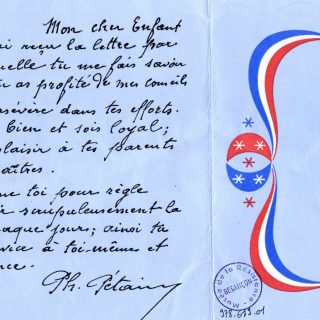 Mon cher Enfant
i reçu la lettre par
uelle tu me fais savoir
u as profité de mes conseils
sévère dans tes efforts.
bien et sois loyal ;
plaisir à tes parents
aîtres.
ne toi pour règle
ir scrupuleusement la
haque jour ; ainsi tu
vice à toi-même et
nce.
Ph. Pétain
Musée de la Résistance
BESANÇON
978.679.01